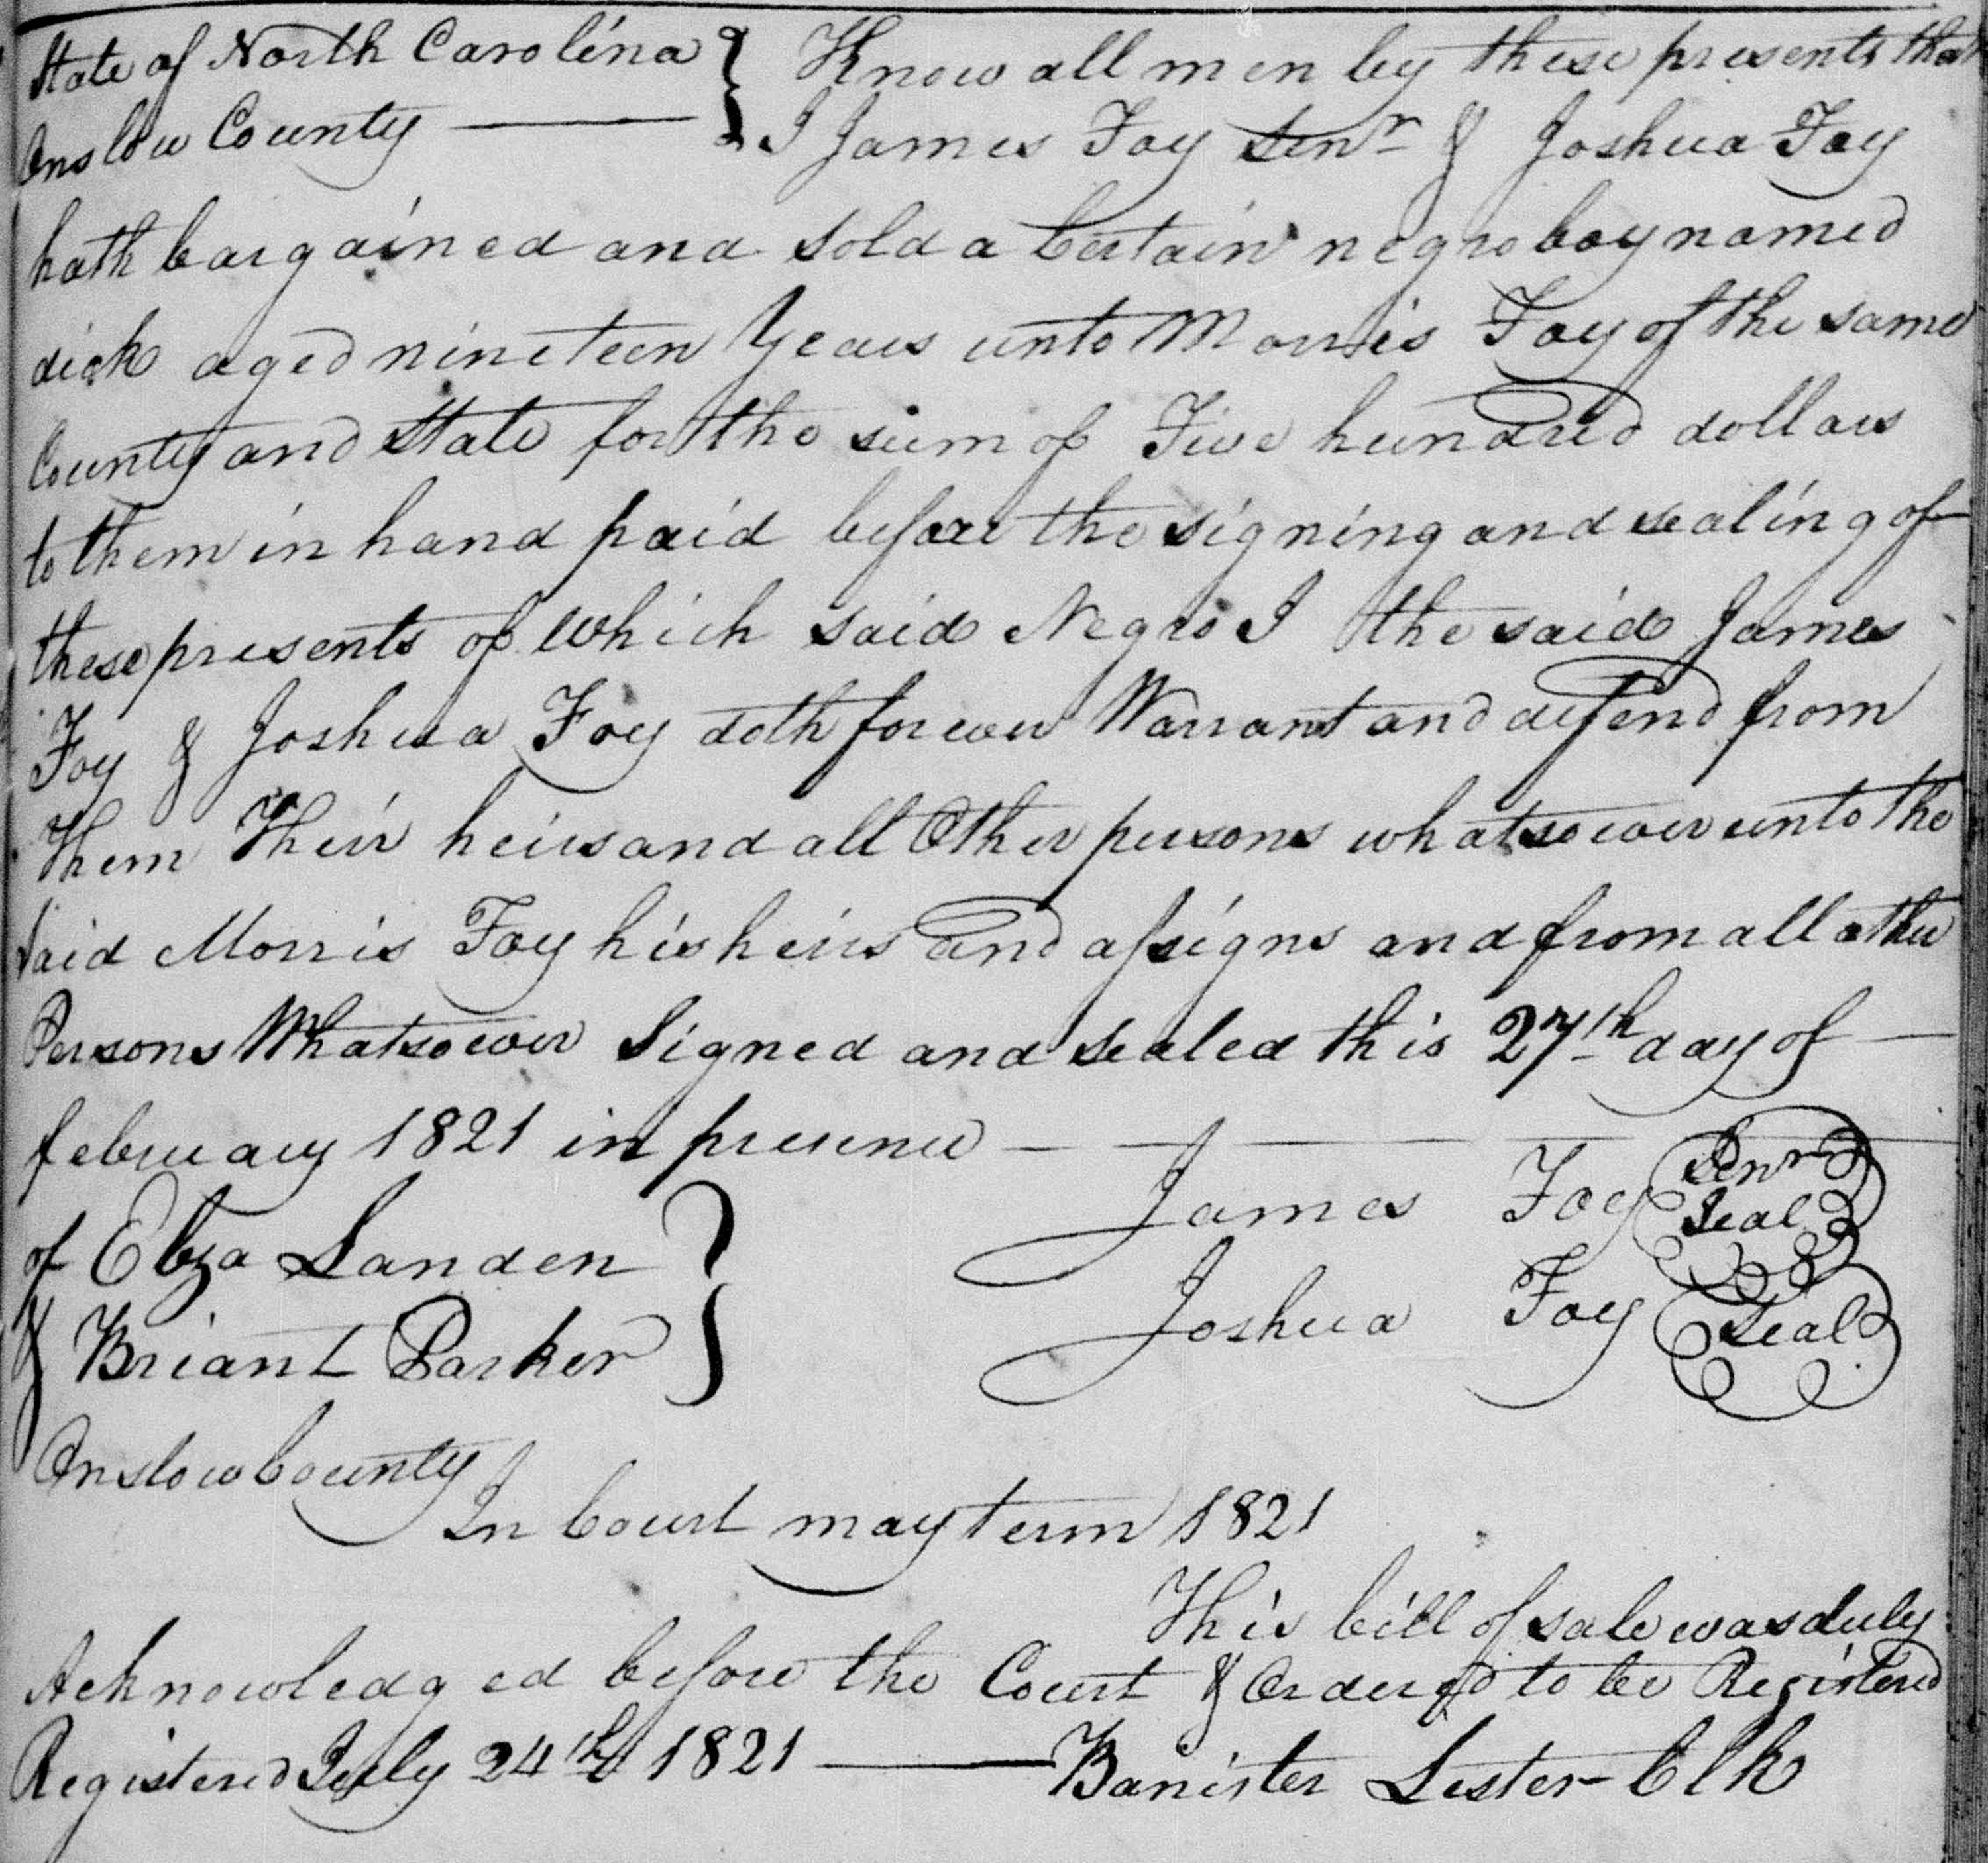 State of North Carolina } Know all men by these presents that
Onslow County — } I James Foy Senr & Joshua Foy
hath bargained and sold a Certain negro boy named
dick aged nineteen Years unto Morris Foy of the same
County and State for the sum of Five hundred dollars
to them in hand paid before the signing and sealing of
these presents of which said Negro I the said James
Foy & Joshua Foy doth forever Warrant and defend from
Them Their heirs and all Other persons whatsoever unto the
Said Morris Foy his heirs and assigns and from all other
Persons Whatsoever Signed and sealed this 27th day of —
february 1821 in presence — — —
James Foy Senr Seal
of Elza Landen }
Joshua Foy Seal
& Briant Parker }
Onslow County
In Court may term 1821
This bill of sale was duly
Acknowledged before the Court & Ordered to be Registered
Registered July 24th 1821 — Banister Lester Clk